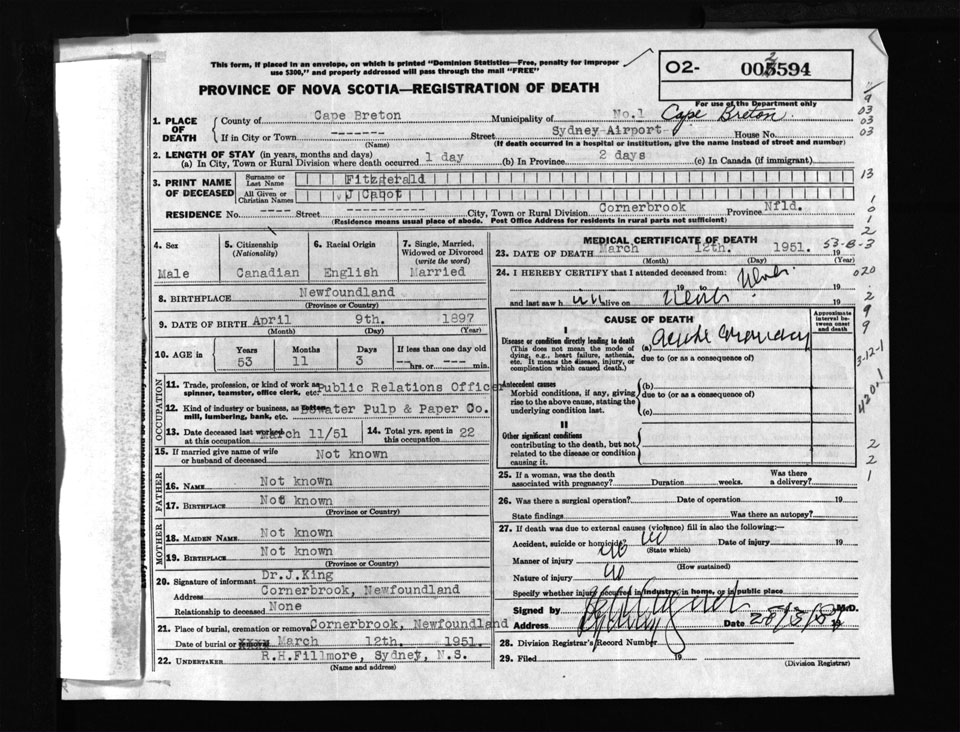 This form, if placed in an envelope, on which is printed "Dominion Statistics—Free, penalty for improper
use $300," and properly addressed will pass through the mail "FREE"
PROVINCE OF NOVA SCOTIA—REGISTRATION OF DEATH
O2- 594
For use of the Department only
1. PLACE OF DEATH
County of Cape Breton Municipality of No.1 Cape Breton
If in City or Town ------- (Name) Street Sydney Airport House No.
(If death occurred in a hospital or institution, give the name instead of street and number)
2. LENGTH OF STAY (in years, months and days)
(a) In City, Town or Rural Division where death occurred 1 day (b) In Province 2 days (c) In Canada (if immigrant)
3. PRINT NAME OF DECEASED
Surname or Last Name Fitzgerald
All Given or Christian Names J Cabot
RESIDENCE No. ---- Street ----------- City, Town or Rural Division Cornerbrook Province Nfld.
(Residence means usual place of abode. Post Office Address for residents in rural parts not sufficient)
4. Sex Male
5. Citizenship (Nationality) Canadian
6. Racial Origin English
7. Single, Married, Widowed or Divorced (write the word) Married
8. BIRTHPLACE Newfoundland
(Province or Country)
9. DATE OF BIRTH April 9th. 1897
(Month) (Day) (Year)
10. AGE in Years 53 Months 11 Days 3 If less than one day old --- hrs. or --- min.
OCCUPATION
11. Trade, profession, or kind of work as spinner, teamster, office clerk, etc. Public Relations Officer
12. Kind of industry or business, as mill, lumbering, bank, etc. Bowater Pulp & Paper Co.
13. Date deceased last worked at this occupation March 11/51
14. Total yrs. spent in this occupation 22
15. If married give name of wife or husband of deceased Not known
FATHER
16. NAME Not known
17. BIRTHPLACE Not known
(Province or Country)
MOTHER
18. MAIDEN NAME Not known
19. BIRTHPLACE Not known
(Province or Country)
20. Signature of informant Dr.J.King
Address Cornerbrook, Newfoundland
Relationship to deceased None
21. Place of burial, cremation or removal Cornerbrook, Newfoundland
Date of burial or March 12th. 1951.
22. UNDERTAKER R.H.Fillmore, Sydney, N.S.
(Name and address)
MEDICAL CERTIFICATE OF DEATH
23. DATE OF DEATH March 12th. 1951. 19
(Month) (Day) (Year)
24. I HEREBY CERTIFY that I attended deceased from:
19 to Never 19
and last saw h im alive on Never 19
CAUSE OF DEATH
Approximate interval between onset and death
I
Disease or condition directly leading to death (a) acute coronary
(This does not mean the mode of dying, e.g., heart failure, asthenia, etc. It means the disease, injury, or complication which caused death.)
due to (or as a consequence of)
Antecedent causes (b)
Morbid conditions, if any, giving rise to the above cause, stating the underlying condition last.
due to (or as a consequence of)
(c)
II
Other significant conditions
contributing to the death, but not related to the disease or condition causing it.
25. If a woman, was the death associated with pregnancy? Duration weeks. Was there a delivery?
26. Was there a surgical operation? Date of operation 19
State findings Was there an autopsy?
27. If death was due to external causes (violence) fill in also the following:—
Accident, suicide or homicide? no Date of injury 19
(State which)
Manner of injury no
(How sustained)
Nature of injury no
Specify whether injury occurred in industry, in home, or in public place
Signed by M.D.
Address Date 19
28. Division Registrar's Record Number
29. Filed 19
(Division Registrar)
9
03
03
03
13
1
0
1
2
53-B-3
020
2
9
9
3-12-1
420.1
2
2
1